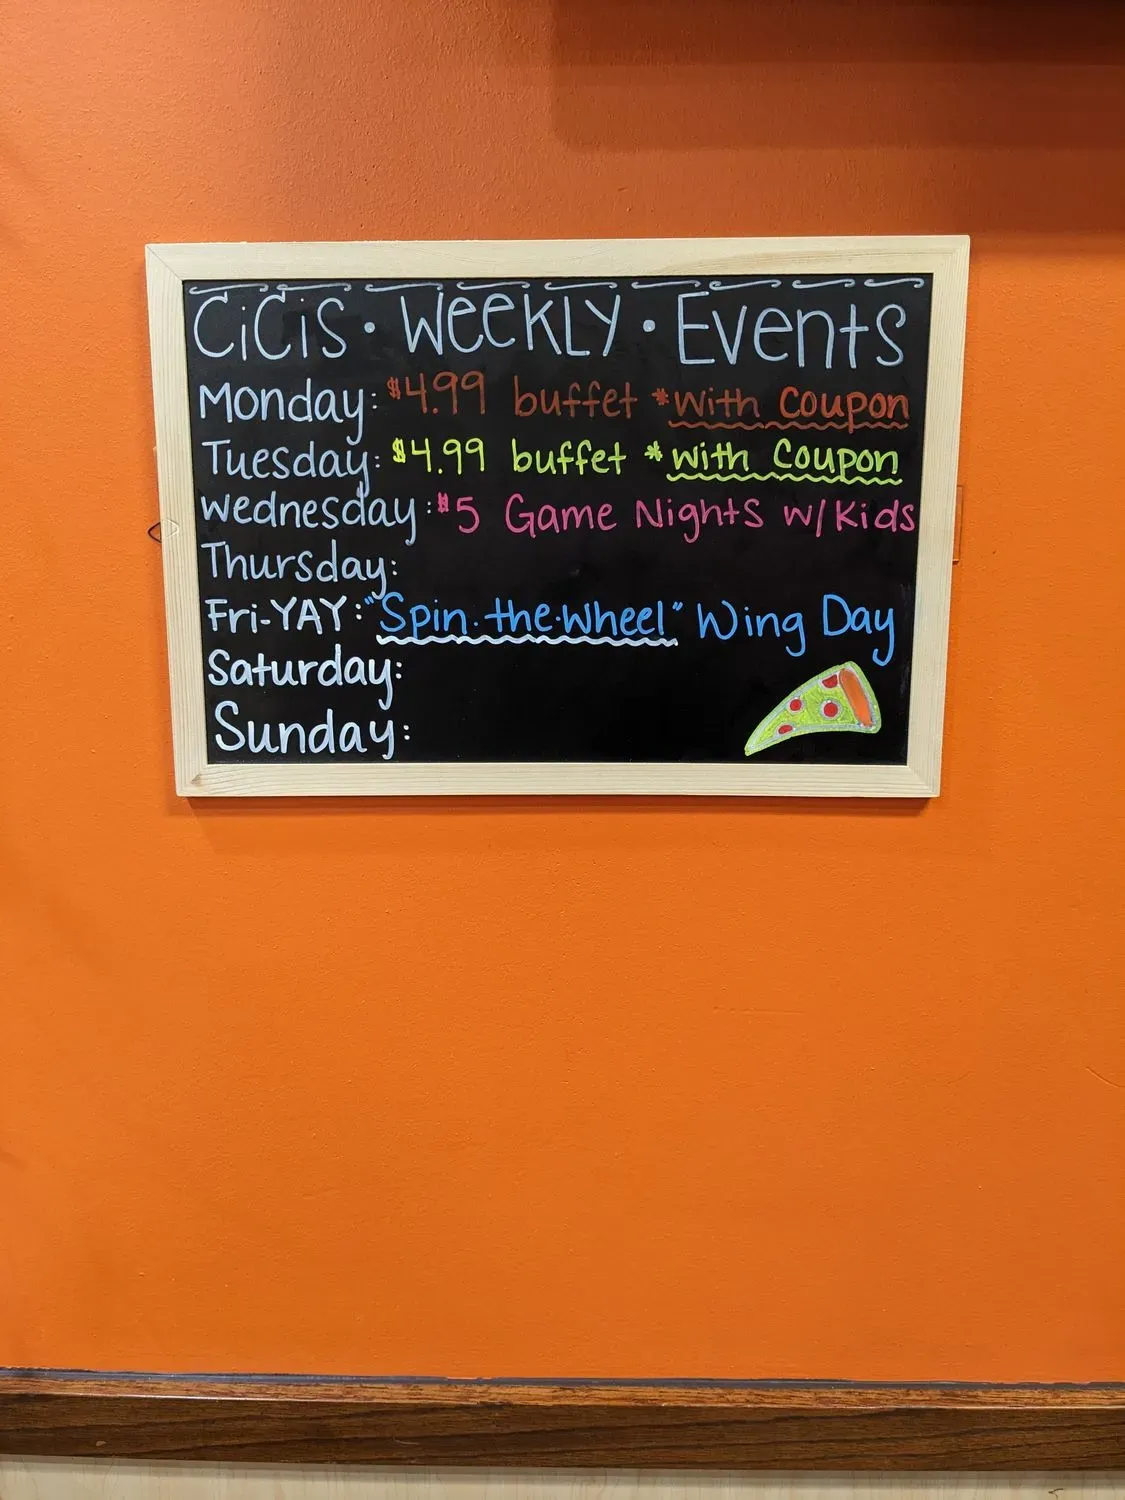 CiCis · Weekly · Events
Monday: $4.99 buffet *with Coupon
Tuesday: $4.99 buffet *with Coupon
Wednesday: $5 Game Nights w/Kids
Thursday:
Fri-YAY: "Spin·the·Wheel" Wing Day
Saturday:
Sunday: